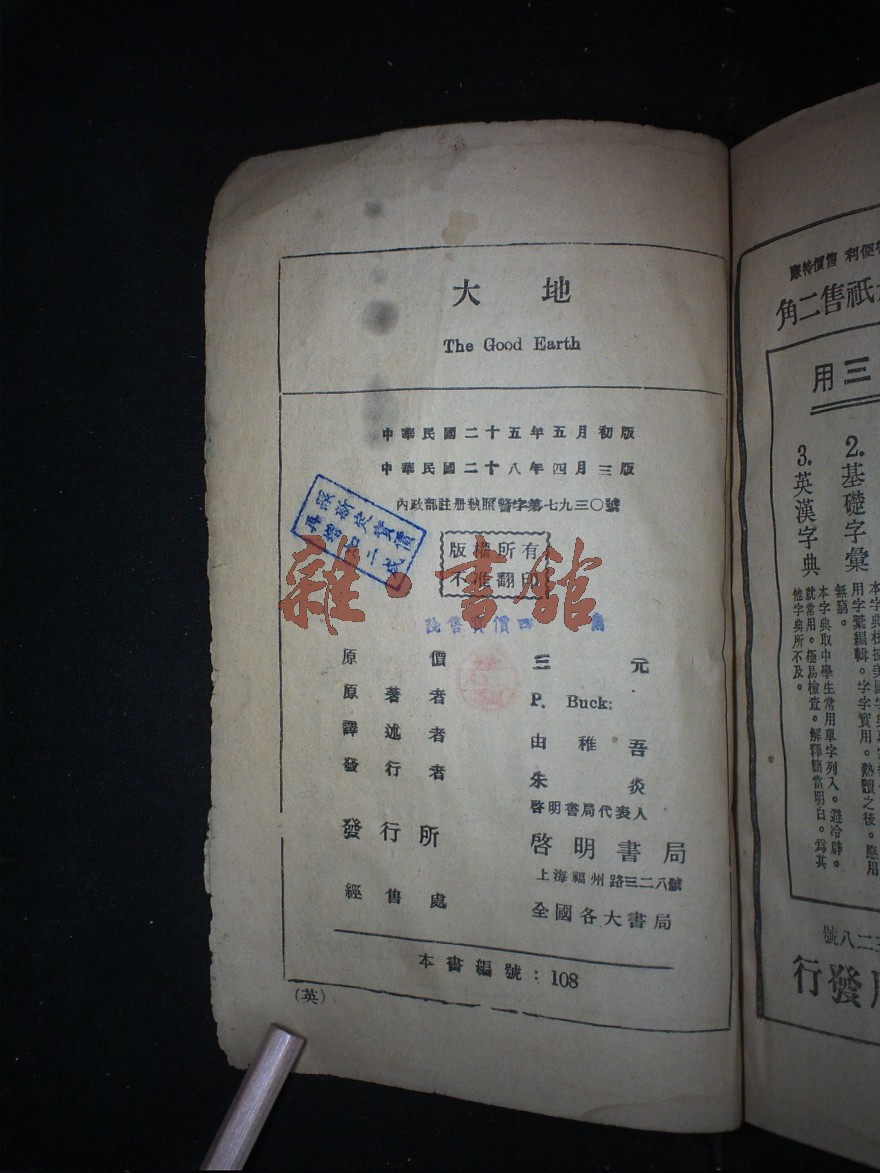 大地
The Good Earth
中華民國二十五年五月初版
中華民國二十八年四月三版
內政部註册執照警字第七九三〇號
版權所有
不准翻印
照新定實價
再增加二成
雜·書館
原價 三元
原著者 P. Buck:
譯述者 由稚吾
發行者 朱炎
啓明書局代表人
發行所 啓明書局
上海福州路三二八號
經售處 全國各大書局
本書編號:108
(英)
利便
售價特廉
祇售二角
三用
2.基礎字彙
用字彙編輯。字字實用。熟讀之後。應用
無窮。
3.英漢字典
本字典取中學生常用單字列入。避冷僻。
就常用。極易檢查。解釋簡當明白。爲其
他字典所不及。
三二八號
發行